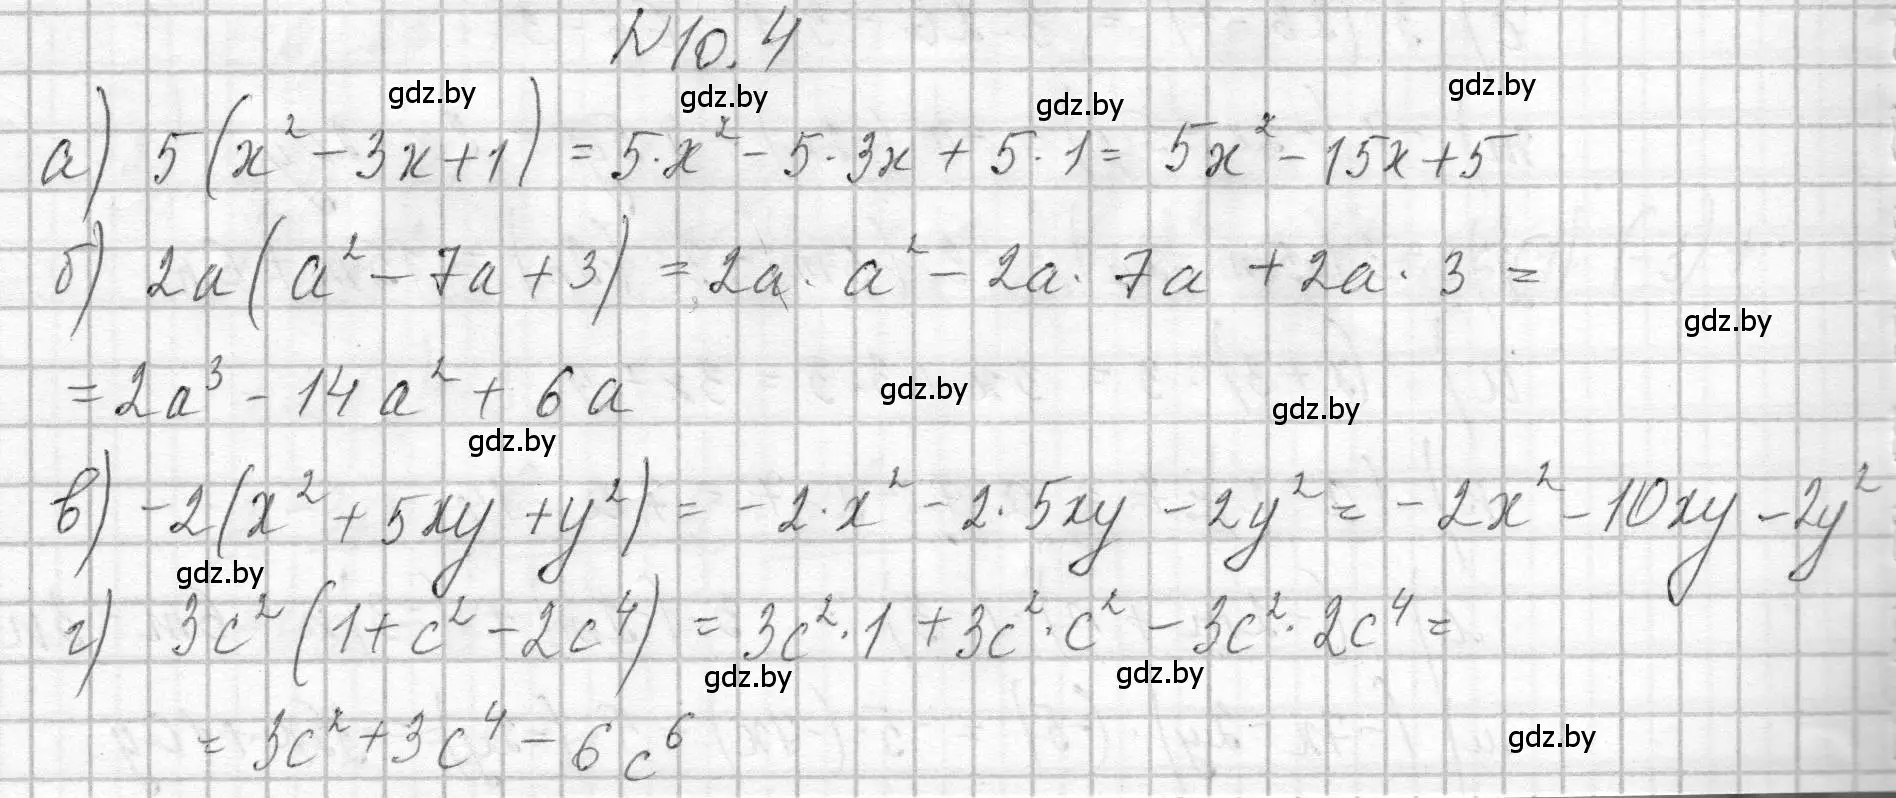 №10.4
gdz.by gdz.by gdz.by gdz.by
а) 5(x² - 3x + 1) = 5·x² - 5·3x + 5·1 = 5x² - 15x + 5
б) 2a(a² - 7a + 3) = 2a·a² - 2a·7a + 2a·3 =
gdz.by
= 2a³ - 14a² + 6a
gdz.by gdz.by
gdz.by
в) -2(x² + 5xy + y²) = -2·x² - 2·5xy - 2y² = -2x² - 10xy - 2y²
gdz.by
г) 3c²(1 + c² - 2c⁴) = 3c²·1 + 3c²·c² - 3c²·2c⁴ =
gdz.by gdz.by
= 3c² + 3c⁴ - 6c⁶
gdz.by